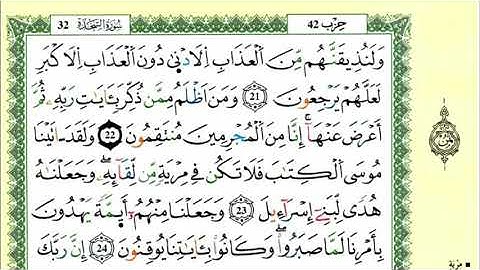 حِزْب 42
سُورَةُ السَّجْدَةِ 32
وَلَنُذِيقَنَّهُم مِّنَ الْعَذَابِ الَادْنىٰ دُونَ الْعَذَابِ الَاكْبَرِ
لَعَلَّهُمْ يَرْجِعُونَ 21 وَمَنَ اَظْلَمُ مِمَّن ذُكِّرَ بِـَٔايَٰتِ رَبِّهِۦ ثُمَّ
أَعْرَضَ عَنْهَآ إِنَّا مِنَ الْمُجْرِمِينَ مُنتَقِمُونَ 22 وَلَقَدَ اٰتَيْنَا
مُوسَى الْكِتَٰبَ فَلَا تَكُن فِے مِرْيَةٍ مِّن لِّقَآئِهِۦ وَجَعَلْنَٰهُ
هُدىً لِّبَنِےٓ إِسْرَآءِيلَ 23 وَجَعَلْنَا مِنْهُمُۥٓ أَئِمَّةً يَهْدُونَ
بِأَمْرِنَا لَمَّا صَبَرُواْ وَكَانُواْ بِـَٔايَٰتِنَا يُوقِنُونَ 24 إِنَّ رَبَّكَ
مِرْيَةٍ